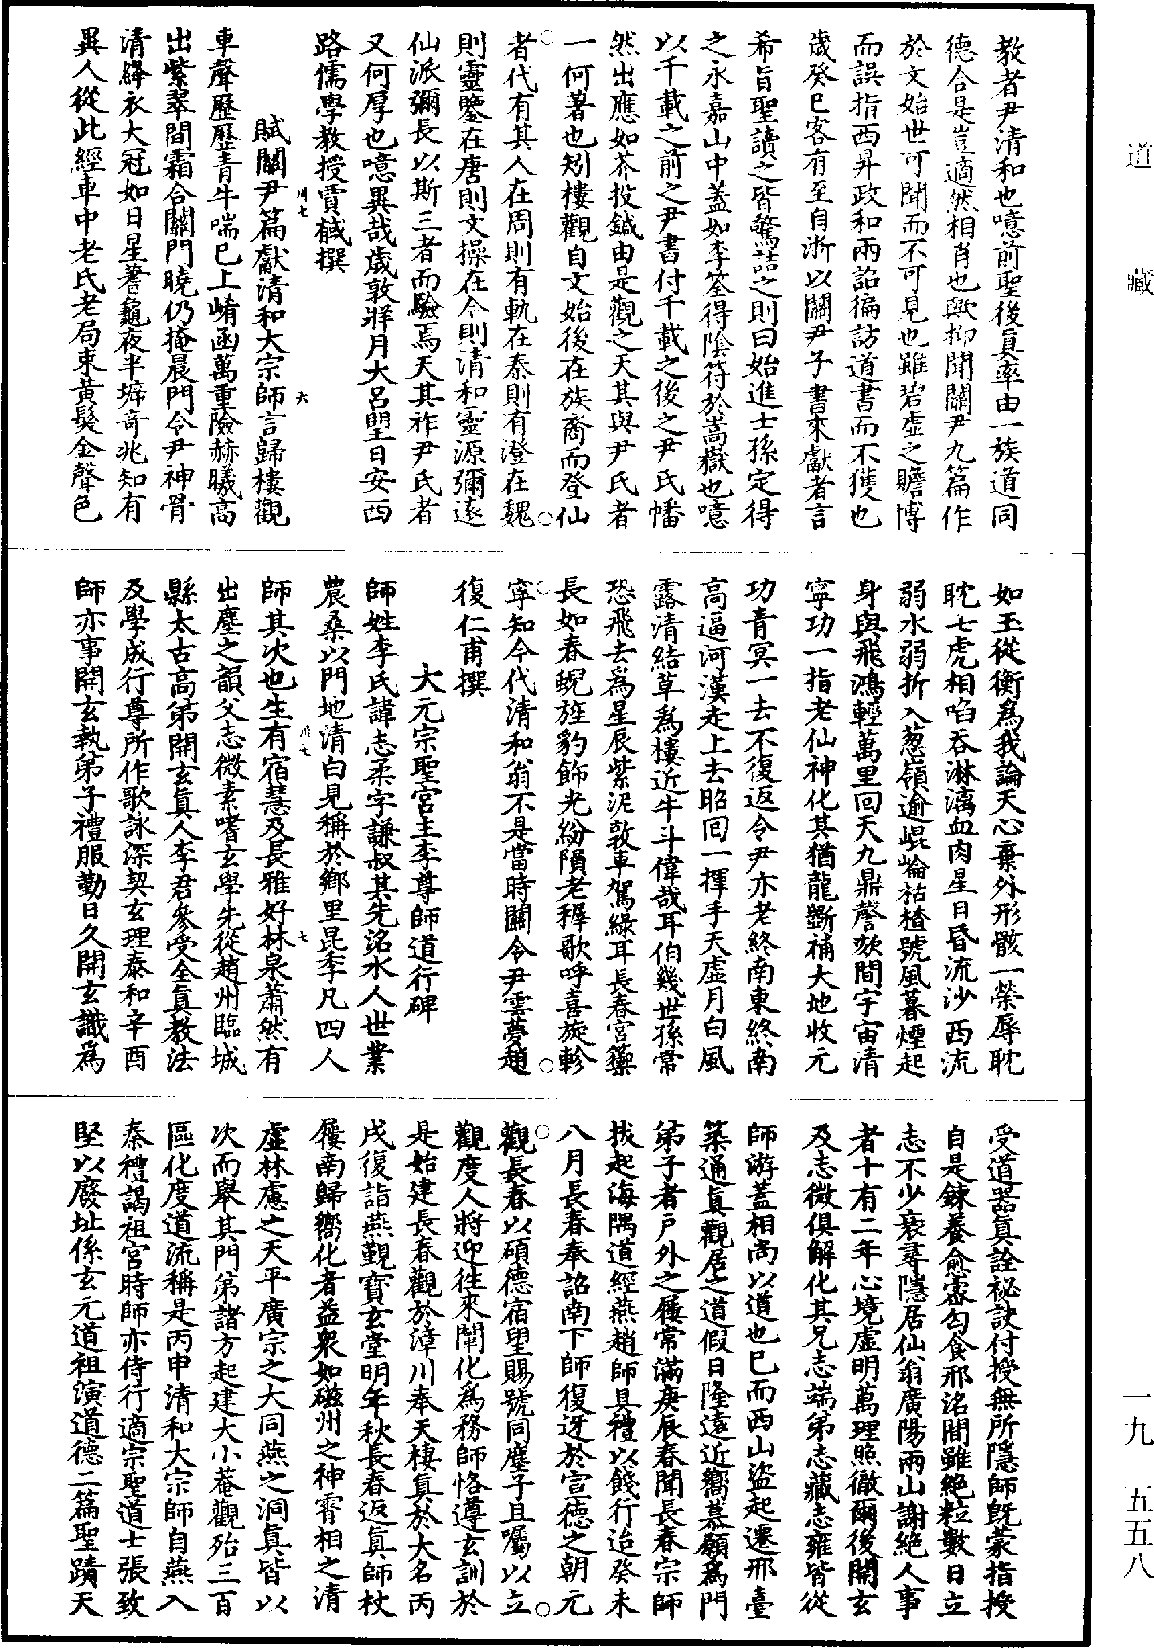 道藏
教者尹清和也噫前聖後真率由一族道同
德合是豈適然相肖也歟抑聞關尹九篇作
於文始世可聞而不可見也雖碧虛之贍博
而誤指西昇政和兩詔徧訪道書而不獲也
歲癸巳客有至自浙以關尹子書來獻者言
希旨聖讀之皆驚喆之則曰始進士孫定得
之永嘉山中蓋如李筌得陰符於嵩嶽也噫
以千載之前之尹書付千載之後之尹氏幡
然出應如芥投鍼由是觀之天其與尹氏者
一何著也矧樓觀自文始後在族裔而登仙
者代有其人在周則有軌在秦則有澄在魏
則靈鑒在唐則文操在今則清和靈源彌遠
仙派彌長以斯三者而驗焉天其祚尹氏者
又何厚也噫異哉歲敦牂月大呂朢日安西
路儒學教授賈𢧐撰
賦關尹篇獻清和大宗師言歸樓觀
車聲歷歷青牛喘已上崤函萬重險赫曦高
出紫翠間霜合關門曉仍掩晨門令尹神骨
清絳衣大冠如日星蓍龜夜半㙤奇兆知有
異人從此經車中老氏老局束黃髮金聲色
如玉從衡為我論天心棄外形骸一榮辱耽
耽七虎相啗吞淋漓血肉星日昏流沙西流
弱水弱折入葱嶺逾崐崘祜楂號風暮煙起
身與飛鴻輕萬里回天九鼎謦欬間宇宙清
寧功一指老仙神化其猶龍斷補大地收元
功青冥一去不復返令尹亦老終南東終南
高逼河漢走上去昭回一揮手天虛月白風
露清結草為樓近牛斗偉哉耳伯幾世孫常
恐飛去為星辰紫泥敦車駕綠耳長春宮蘂
長如春蜺旌豹飾光紛隕老稺歌呼喜旋軫
寧知今代清和翁不是當時關令尹雲夢趙
復仁甫撰
大元宗聖宮主李尊師道行碑
師姓李氏諱志柔字謙叔其先洺水人世業
農桑以門地清白見稱於鄉里昆季凡四人
師其次也生有宿慧及長雅好林泉蕭然有
出塵之韻父志微素嗜玄學先從趙州臨城
縣太古高弟開玄真人李君參受全真教法
及學成行尊所作歌詠深契玄理泰和辛酉
師亦事開玄執弟子禮服勤日久開玄識為
受道器真詮祕訣付授無所隱師既蒙指授
自是鍊養愈密匃食邢洺間雖絕粒數日立
志不少衰尋隱居仙翁廣陽兩山謝絕人事
者十有二年心境虛明萬理照徹爾後開玄
及志微俱解化其兄志端弟志藏志雍皆從
師游蓋相尚以道也已而西山盜起遷邢臺
築通真觀居之道假日隆遠近嚮慕願為門
弟子者戶外之屨常滿庚辰春聞長春宗師
拔起海隅道經燕趙師具禮以餞行迨癸未
八月長春奉詔南下師復迓於宣德之朝元
觀長春以碩德宿望賜號同塵子且囑以立
觀度人將迎往來闡化為務師恪遵玄訓於
是始建長春觀於漳川奉天棲真於大名丙
戌復詣燕覲寶玄堂明年秋長春返真師杖
屨南歸嚮化者益衆如磁州之神霄相之清
虛林慮之天平廣宗之大同燕之洞真皆以
次而舉其門弟諸方起建大小菴觀殆三百
區化度道流稱是丙申清和大宗師自燕入
秦禮謁祖宮時師亦侍行適宗聖道士張致
堅以廢址係玄元道祖演道德二篇聖蹟天
一九 五五八